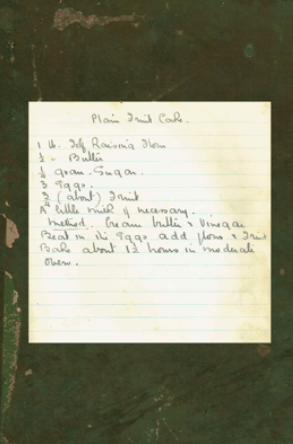 Plain Fruit Cake.
1 lb. Self Raising Flour
½ " Butter
½ gran. Sugar.
3 Eggs.
¾ (about) Fruit
A little milk if necessary.
Method. Cream butter & Vinegar
Beat in the Eggs add flour & Fruit
Bake about 1½ hours in moderate
oven.